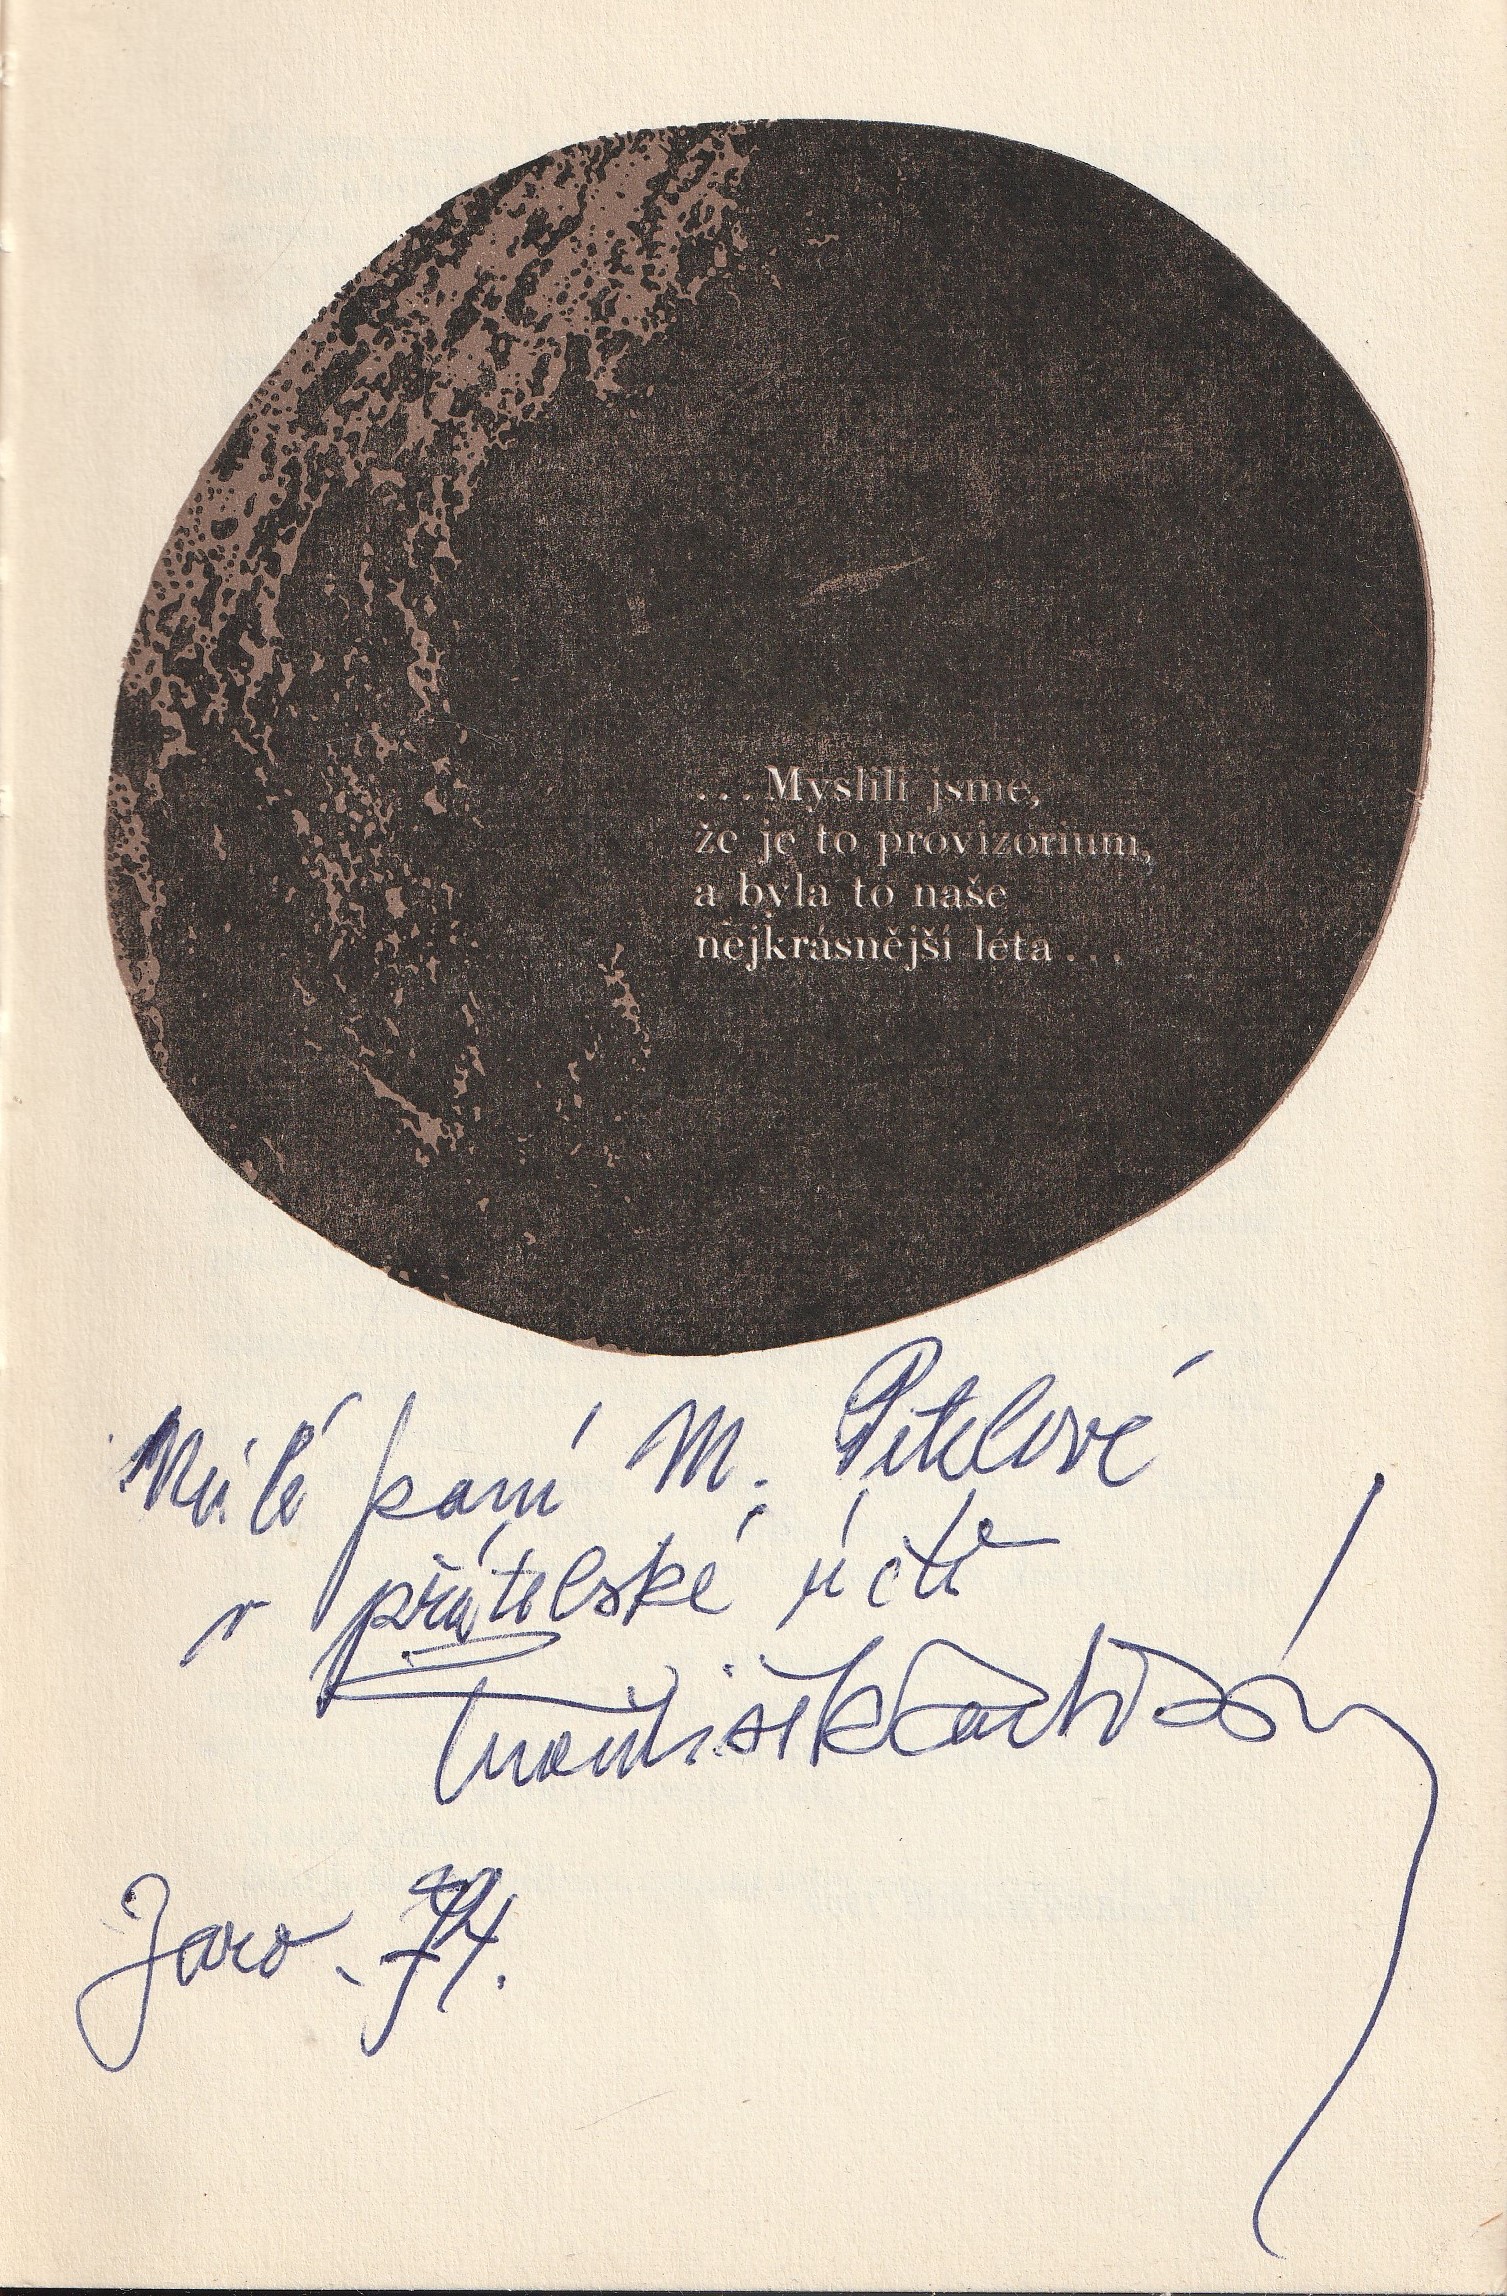 ...Myslili jsme,
že je to provizorium,
a byla to naše
nejkrásnější léta...
Milé paní M. Pitelové
v přátelské úctě
František
Jaro - 74.